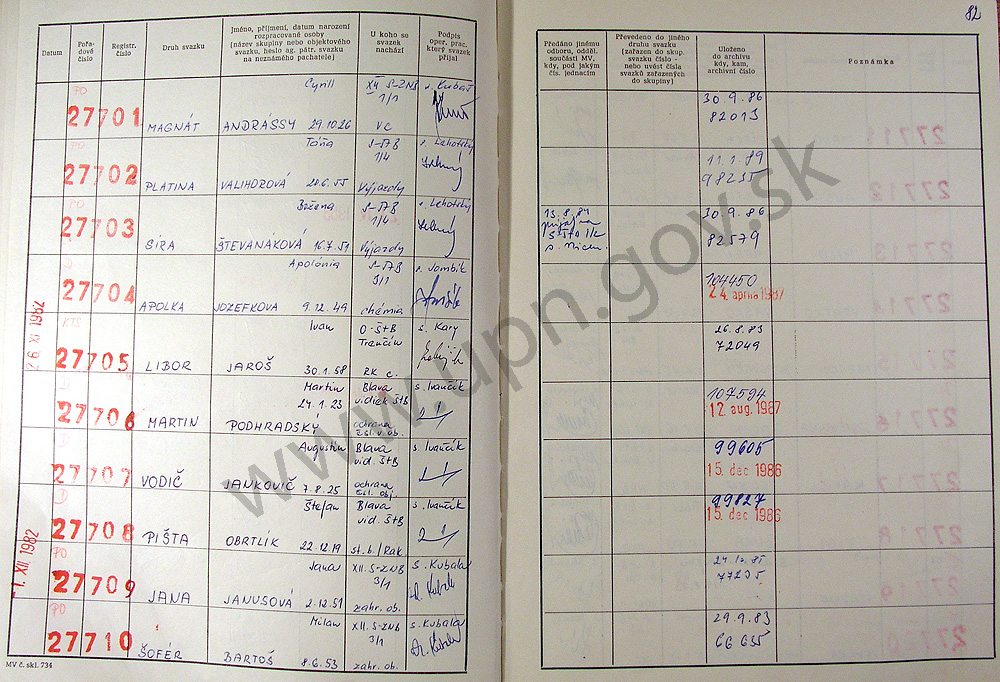 82
Datum
Pořadové číslo
Registr. číslo
Druh svazku
Jméno, příjmení, datum narození rozpracované osoby
(název skupiny nebo objektového svazku, heslo ag. pátr. svazku na neznámého pachatele)
U koho se svazek nachází
Podpis oper. prac. který svazek přijal
Předáno jinému odboru, odděl. součásti MV, kdy, pod jakým čís. jednacím
Převedeno do jiného druhu svazku (zařazen do skup. svazku číslo - nebo uvést čísla svazků zařazených do skupiny)
Uloženo do archivu kdy, kam, archivní číslo
Poznámka
PO Cyril XII S-ZNB
27701 MAGNÁT ANDRÁSSY 29.10.26 1/1 VC
30.9.86
82013
PO Tóna S-ŠTB
27702 PLATINA VALIHOROVÁ 20.6.55 1/4 Výjazdy
11.1.89
98235
PO Božena S-ŠTB s. Lehotský
27703 SÍRA ŠTEVANÁKOVÁ 16.7.51 1/4 Výjazdy
13.8.84
30.9.86
82579
Apolónia S-ŠTB s. Jombík
27704 APOLKA JOZEFKOVA 9.12.49 3/1 chémia
104450
24. apríla 1987
26. XI 1982
KTS Ivan O-ŠtB s. Kary
27705 LIBOR JAROŠ 30.1.58 Trenčín RK c.
26.8.83
72049
D Martin Blava s. Ivančík
27706 MARTIN PODHRADSKY 24.1.23 vidiek ŠtB ochrana čsl. v. ob.
107594
12. aug. 1987
D Augustin Blava s. Ivančík
27707 VODIČ JANKOVIČ 7.8.25 vid. ŠtB ochrana čsl. obj.
99605
15. dec 1986
D Štefan Blava s. Ivančík
27708 PIŠTA OBRTLÍK 22.12.19 vid. ŠtB st. b./Rak
99827
15. dec 1986
-1. XII. 1982
PO Jana XII. S-ZNB s. Kubala
27709 JANA JANUSOVÁ 2.12.51 3/1 zahr. ob.
77235
PO Milan XII. S-ZNB s. Kubala
27710 ŠOFÉR BARTOŠ 8.6.53 3/1 zahr. ob.
29.9.83
66655
MV č. skl. 734
www.upn.gov.sk